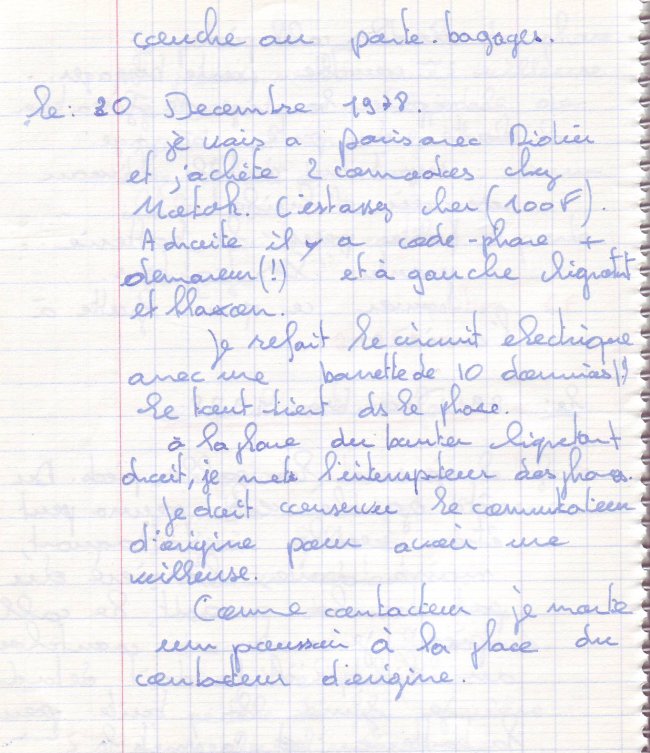 couche au porte-bagages.
le: 20 Decembre 1978.
je vais a paris avec Didier
et j'achète 2 commodos chez
Motok. C'est assez cher (100F).
A droite il y a code-phare +
demareur(!) et à gauche clignott
et klaxon.
Je refait le circuit electrique
avec une barrette de 10 dominos(!)
le tout tient ds le phare.
à la place du bouton clignotant
droit, je mets l'interrupteur des phares.
Je doit conserver le commutateur
d'origine pour avoir une
veilleuse.
Comme contacteur je monte
un poussoir à la place du
contacteur d'origine.